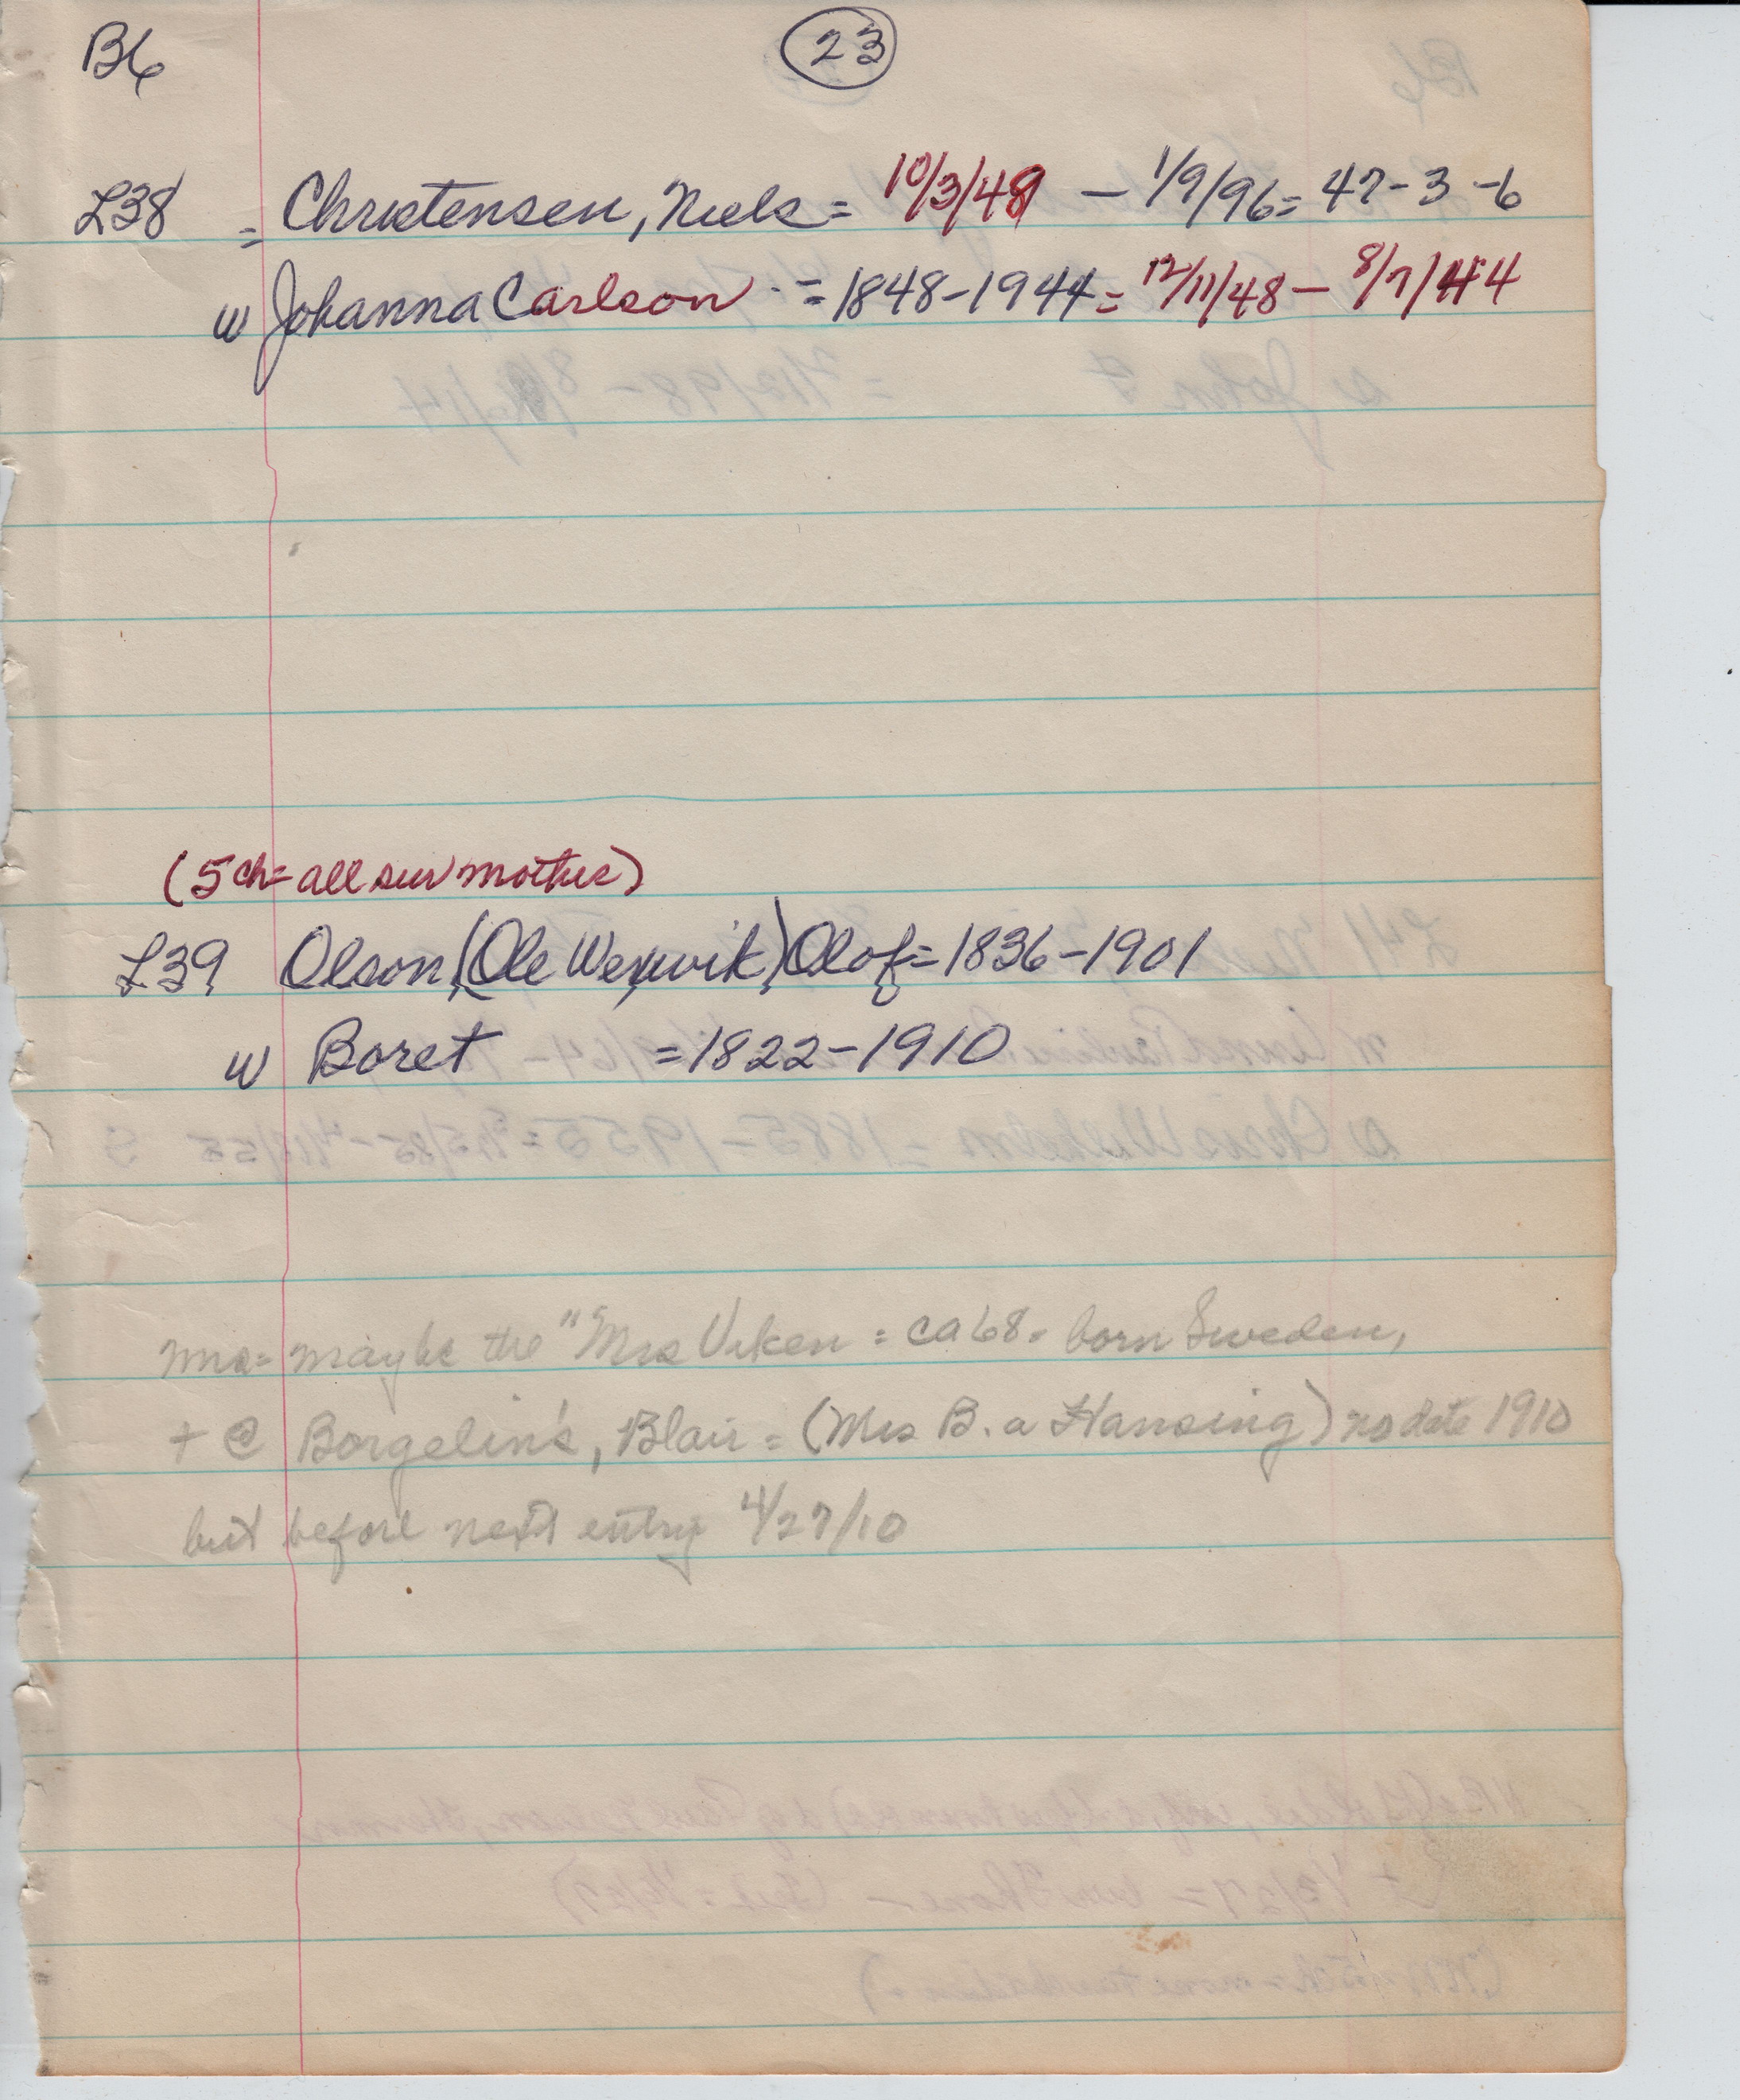 B6
23
L38 = Christensen, Niels = 10/3/48 - 1/9/96 = 47-3-6
w Johanna Carlson = 1848-1944 = 12/11/48 - 8/7/44
(5 ch = all sur mother)
L39 Olson, (Ole Wexwik) Olof = 1836-1901
w Boret = 1822-1910
maybe the "Mrs Viken = ca 68. born Sweden,
+ @ Borgelin's, Blair = (Mrs B. a Hansing) no date 1910
but before next entry 4/27/10